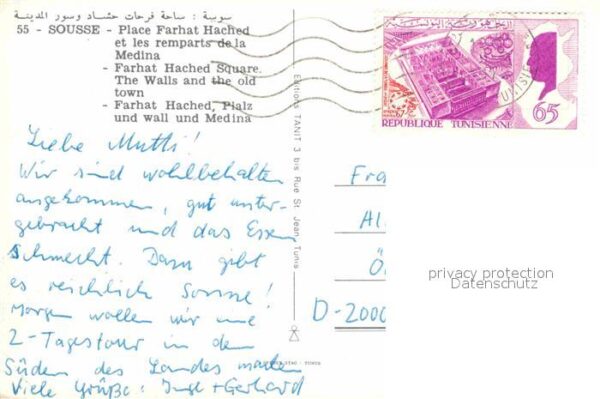 سوسة : ساحة فرحات حشاد وسور المدينة
55 - SOUSSE - Place Farhat Hached
et les remparts de la
Medina
- Farhat Hached Square.
The Walls and the old
town
- Farhat Hached, Pialz
und wall und Medina
Liebe Mutti!
Wir sind wohlbehalten
angekommen, gut unter-
gebracht und das Essen
schmeckt. Dazu gibt
es reichlich Sonne!
Morgen wollen wir eine
2-Tagestour in den
Süden des Landes machen
Viele Grüße: Inge + Gerhard
Editions TANIT 3 bis Rue St. Jean, Tunis
الجمهورية التونسية
REPUBLIQUE TUNISIENNE
65
67
Fra
Al
Ö
D-2000
privacy protection
Datenschutz